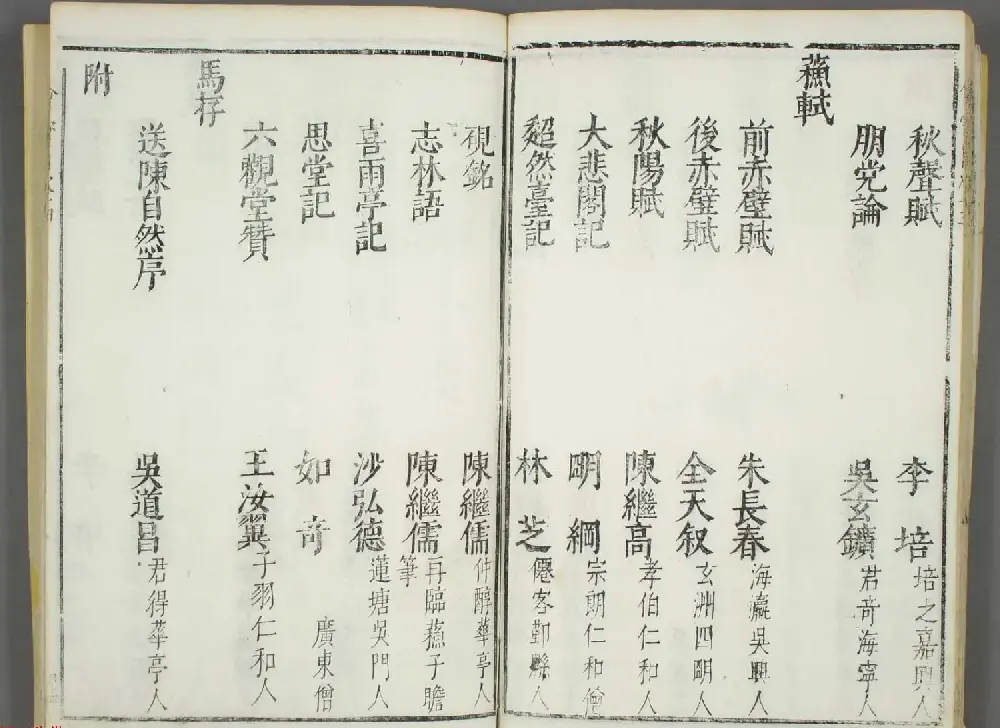 秋聲賦 李培 培之嘉興人
朋党論 吳玄鑛 君竒海寧人
蘓軾
前赤壁賦 朱長春 海瀛吳興人
後赤壁賦 全天叙 玄洲四明人
秋陽賦 陳繼高 孝伯仁和人
大悲閣記 明綱 宗朗仁和僧
超然臺記 林芝 僊客鄞縣人
硯銘 陳繼儒 仲醇華亭人
志林語 陳繼儒 再臨蘓子瞻筆
喜雨亭記 沙弘德 蓮塘吳門人
思堂記 如竒 廣東僧
六觀堂贊 王汝翼 子羽仁和人
馬存
送陳自然序 吳道昌 君得華亭人
附